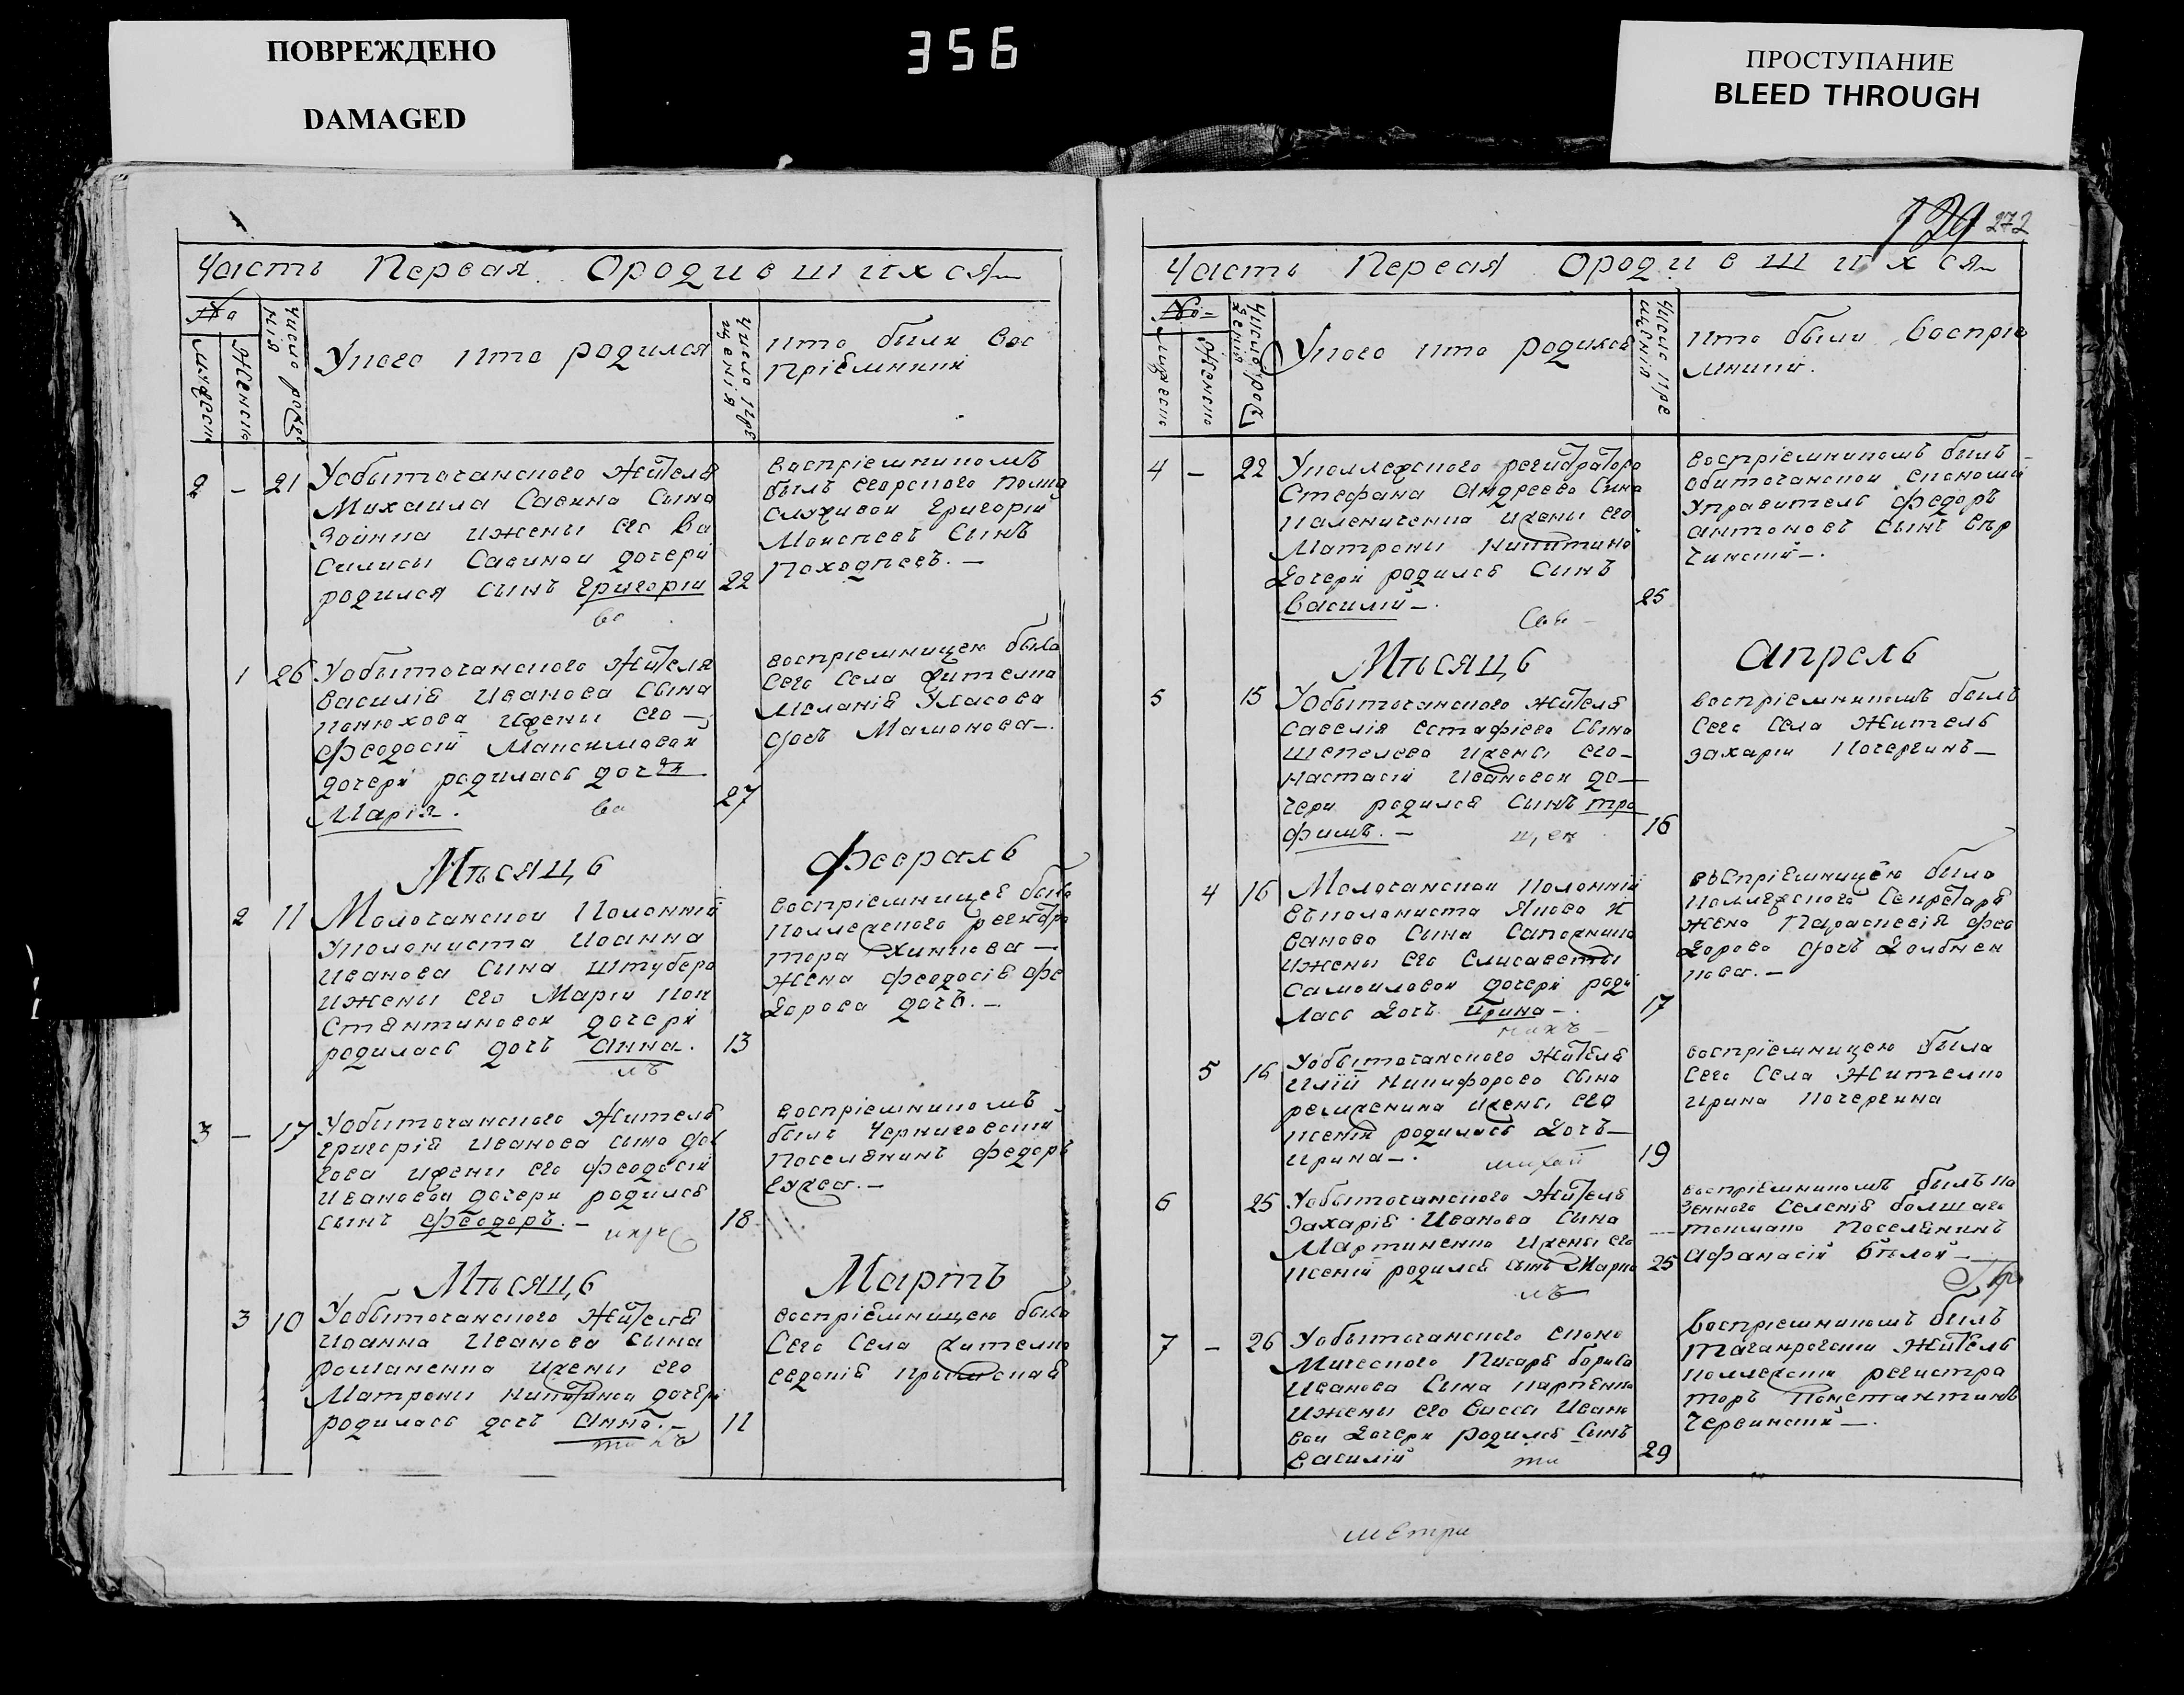 ПОВРЕЖДЕНО
DAMAGED
356
ПРОСТУПАНИЕ
BLEED THROUGH
Часть Первая Ородившихся
№
мужеск
женск
Число рожде
нія
Укого кто родился
Число кре
щенія
кто были вос
пріемники
2 - 21 Уобыточанского жителя
Михаила Савина Сына
Зайкина ижены его Ва
силисы Савиной дочери
родился сынъ Григорій 22
воспріемникомъ
былъ егорского полка
служивой Григорій
Моисеевъ Сынъ
Походнеевъ. —
1 26 Уобыточанского жителя
Василія Иванова Сына
Конюхова ижены его —
Феодосіи Максимовой
дочери родилась дочь
Марія. 27
воспріемницею была
Сего Села жителка
Меланія Уласова
дочь Мамонова —.
Мѣсяцъ Февраль
2 11 Молочанской Колоніи
Уколониста Иоанна
Иванова Сына Штубера
ижены его Маріи Кон
стантиновой дочери
родилась дочь Анна. 13
воспріемницею была
Коллежского регистра
тора Хинкова —
жена Феодосія Фе
дорова дочь. —
3 - 17 Уобыточанского жителя
Григорія Иванова сына
ижены его Феодосіи
Ивановой дочери родился
сынъ Феодоръ. — 18
воспріемникомъ
былъ Черниговский
Поселянинъ Федоръ
Мѣсяцъ Мартъ
3 10 Уобыточанского жителя
Иоанна Иванова Сына
Романенка ижены его
Матроны Никитиной дочери
родилась дочь Анна. — 11
воспріемницею была
Сего Села жителка
Евдокія
129 272
Часть Первая Ородившихся
№
мужеск
женско
Число рож
денія
Укого кто родился
Число кре
щенія
кто были воспріе
мники.
4 - 22 Уколлежского регистратора
Стефана Андреева Сына
Палениченка ижены его
Матроны Никитиной
Дочери родился Сынъ
Василій —. 25
воспріемникомъ былъ
обиточанской економіи
Управитель Федоръ
Антоновъ Сынъ Вер
чинскій —.
Мѣсяцъ Апрель
5 15 Уобыточанского жителя
Савелія Естафіева Сына
Шепелева ижены его —
Настасіи Ивановой до
чери родился Сынъ Тро
фимъ. — 16
воспріемникомъ былъ
Сего Села Житель
Захарій Кочергинъ —
4 16 Молочанской Колоніи
Уколониста Якова И
ванова Сына
ижены его Елисаветы
Самоиловой дочери роди
лась Дочь Ирина —. 17
воспріемницею была
Коллежского Секретаря
жена Параскевія Фео
дорова дочь Долбнен
кова. —
5 16 Уобыточанского жителя
Иліи Никифорова Сына
ижены его
Ксеніи родилась Дочь —
Ирина —. 19
воспріемницею была
Сего Села Жителка
Ирина Кочергина
6 25 Уобыточанского жителя
Захарія Иванова Сына
Мартиненка ижены его
Ксеніи родился сынъ Марко 25
воспріемникомъ былъ ка
зенного Селенія болшаго
токмака Поселянинъ
Афанасій Бѣлой —
7 - 26 Уобыточанского еконо
мического Писаря Бориса
Иванова Сына
ижены его Васы Ивано
вой Дочери родился Сынъ
Василій 29
Воспріемникомъ былъ
таганрогский житель
коллежский регистра
торъ Константинъ
Червинский —.